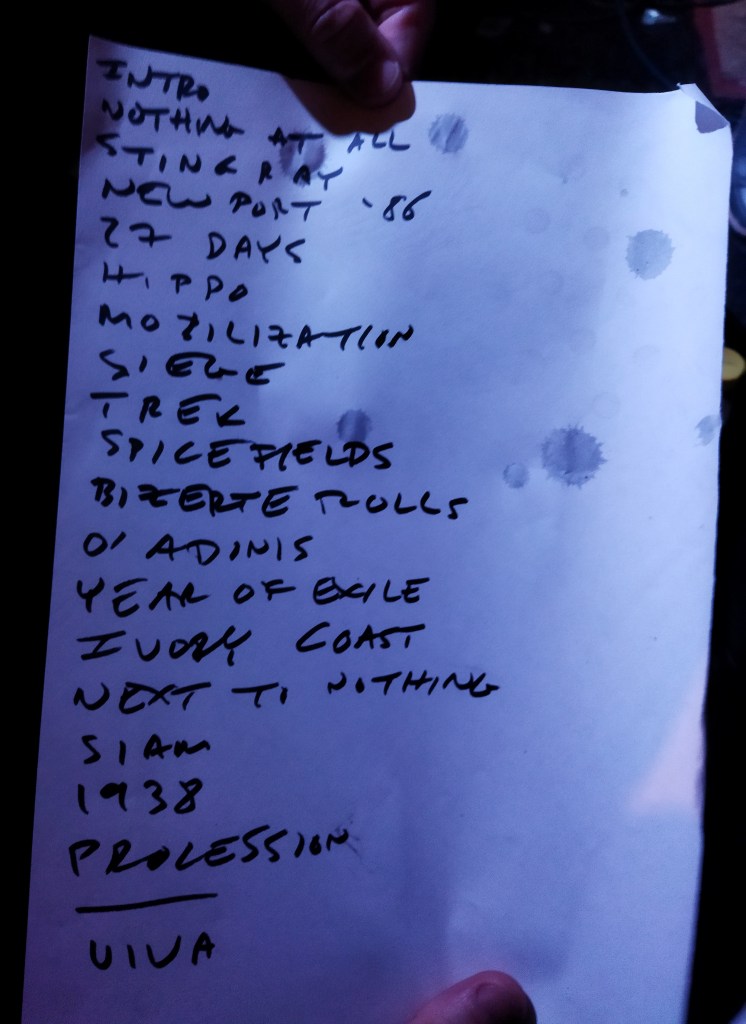 INTRO
NOTHING AT ALL
STING RAY
NEW PORT '86
27 DAYS
HIPPO
MOBILIZATION
SIEGE
TREK
SPICEFIELDS
BIZERTE ROLLS
O' ADINIS
YEAR OF EXILE
IVORY COAST
NEXT TO NOTHING
SIAM
1938
PROCESSION
VIVA